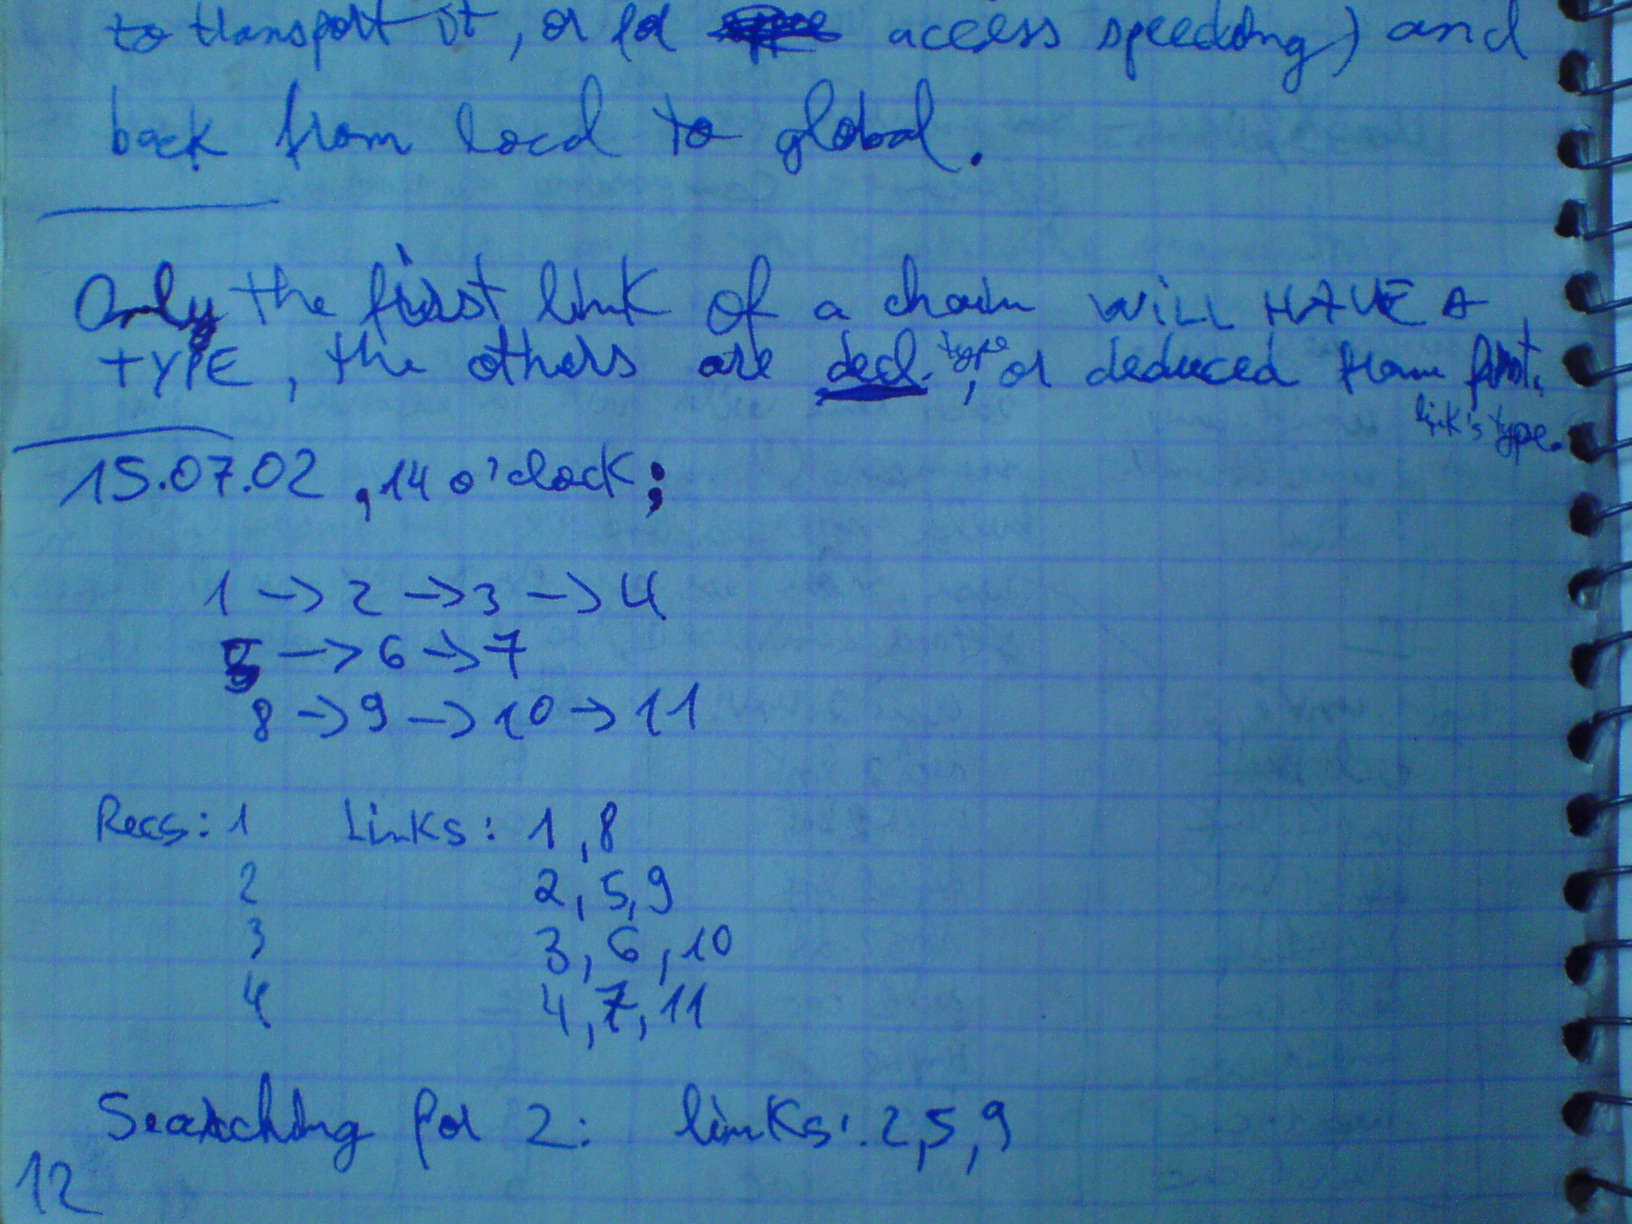 to transport it, or for access speeding) and
back from local to global.
Only the first link of a chain WILL HAVE A
TYPE, the others are decl. type, or deduced from first
link's type.
15.07.02, 14 o'clock;
1 -> 2 -> 3 -> 4
5 -> 6 -> 7
8 -> 9 -> 10 -> 11
Recs: 1 Links: 1, 8
2 2, 5, 9
3 3, 6, 10
4 4, 7, 11
Searching for 2: links: 2, 5, 9
12